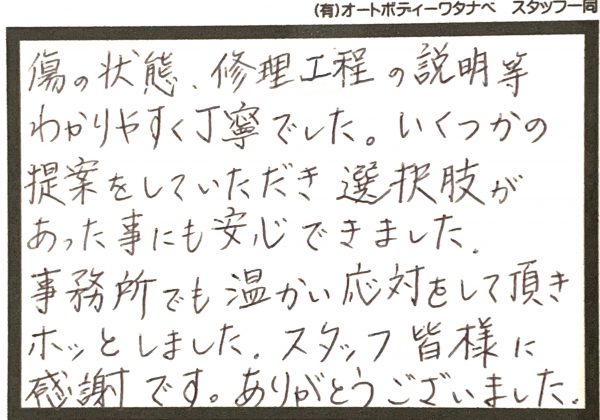 (有)オートボディーワタナベ スタッフ一同
傷の状態、修理工程の説明等
わかりやすく丁寧でした。いくつかの
提案をしていただき選択肢が
あった事にも安心できました。
事務所でも温かい応対をして頂き
ホッとしました。スタッフ皆様に
感謝です。ありがとうございました。